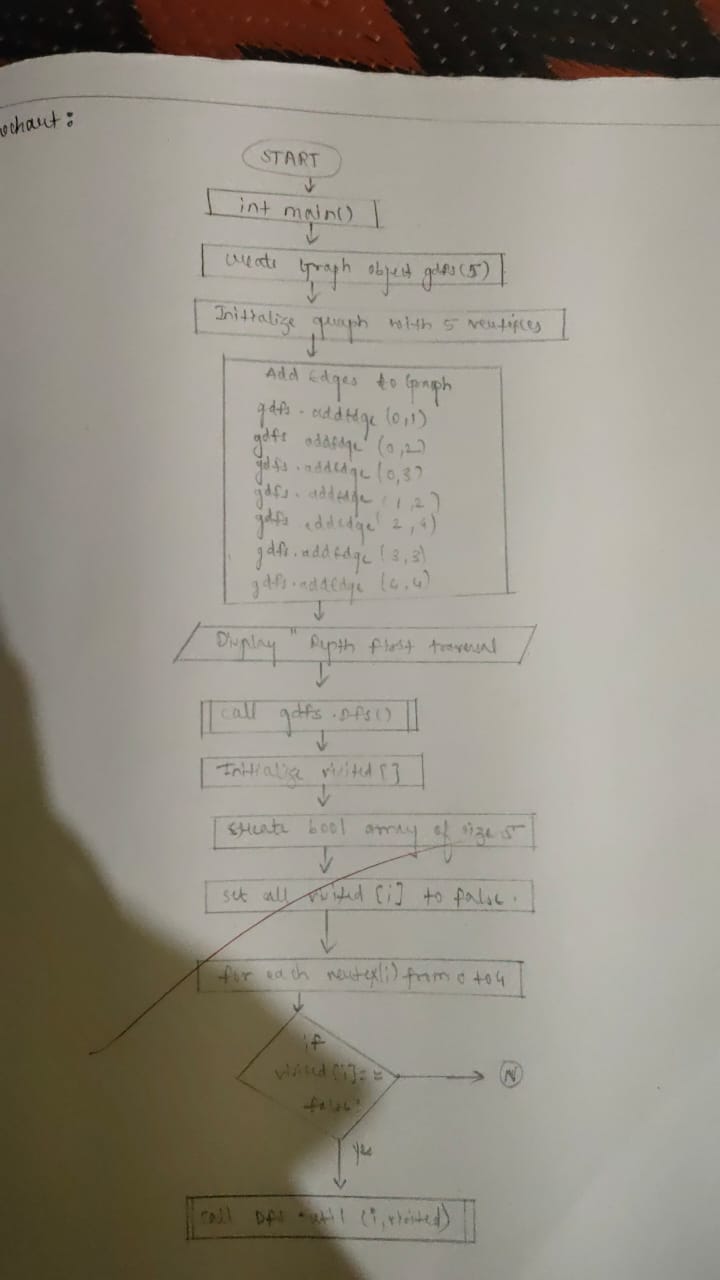 ochart:
START
int main()
create Graph object gdfs(5)
Initialize graph with 5 vertices
Add Edges to Graph
gdfs. addEdge (0,1)
gdfs addEdge (0,2)
gdfs. addEdge (0,3)
gdfs. addEdge (1,2)
gdfs addEdge (2,4)
gdfs. addEdge (3,3)
gdfs. addEdge (4,4)
Display " Depth first traversal
call gdfs.DFS()
Initialize visited[]
create bool array of size 5
set all visited [i] to false.
for each vertex(i) from 0 to 4
if
visited [i]==
false
N
Yes
call DFS util (i, visited)